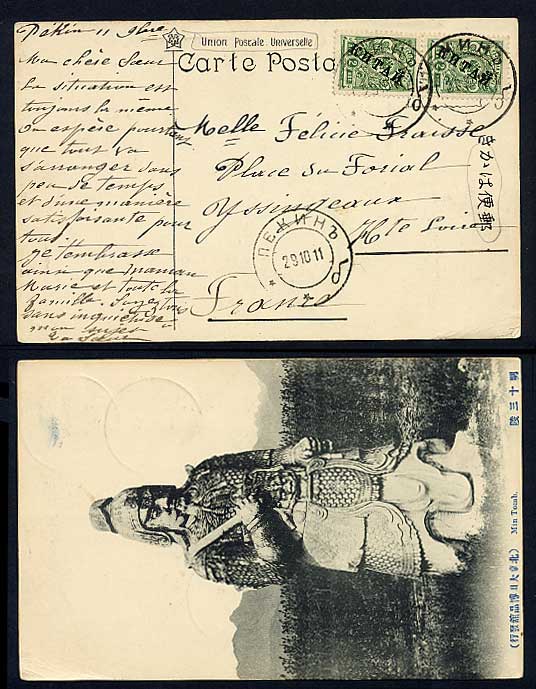 Pékin 11 9bre
Ma chère Sœur
La situation est
toujours la même
On espère pourtant
que tout va
s'arranger dans
peu de temps
et d'une manière
satisfaisante pour
tous
Je t'embrasse
ainsi que maman
Marie et toute la
famille. Soyez tous
sans inquiétude
Union Postale Universelle
Carte Posta
КИТАЙ
КИТАЙ
Melle Félicie Fraisse
Place du Foirial
Yssingeaux
Hte Loire
France
ПЕКИНЪ
28 10 11
きかは便郵
明十三陵
Min Tomb.